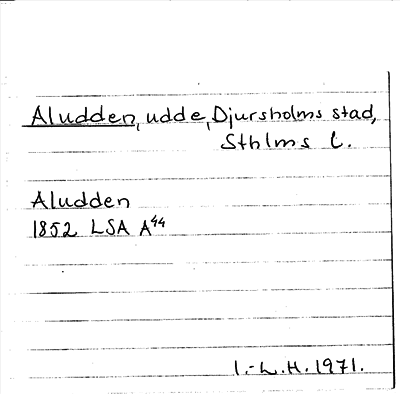 Aludden, udde, Djursholms stad,
Sthlms l.
Aludden
1852 LSA A44
I.-L.H. 1971.